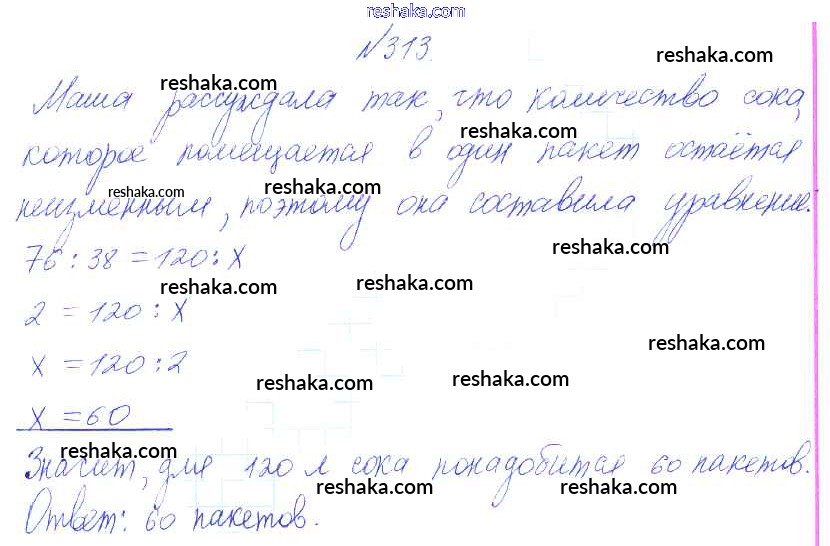 reshaka.com
№313.
reshaka.com
reshaka.com
Маша рассуждала так, что количество сока,
reshaka.com
которое помещается в один пакет остаётся
reshaka.com
reshaka.com
неизменным, поэтому она составила уравнение.
reshaka.com
76 : 38 = 120 : х
reshaka.com
2 = 120 : х
reshaka.com
х = 120 : 2
reshaka.com
reshaka.com
х = 60
reshaka.com
Значит, для 120 л сока понадобится 60 пакетов.
reshaka.com
reshaka.com
Ответ: 60 пакетов.